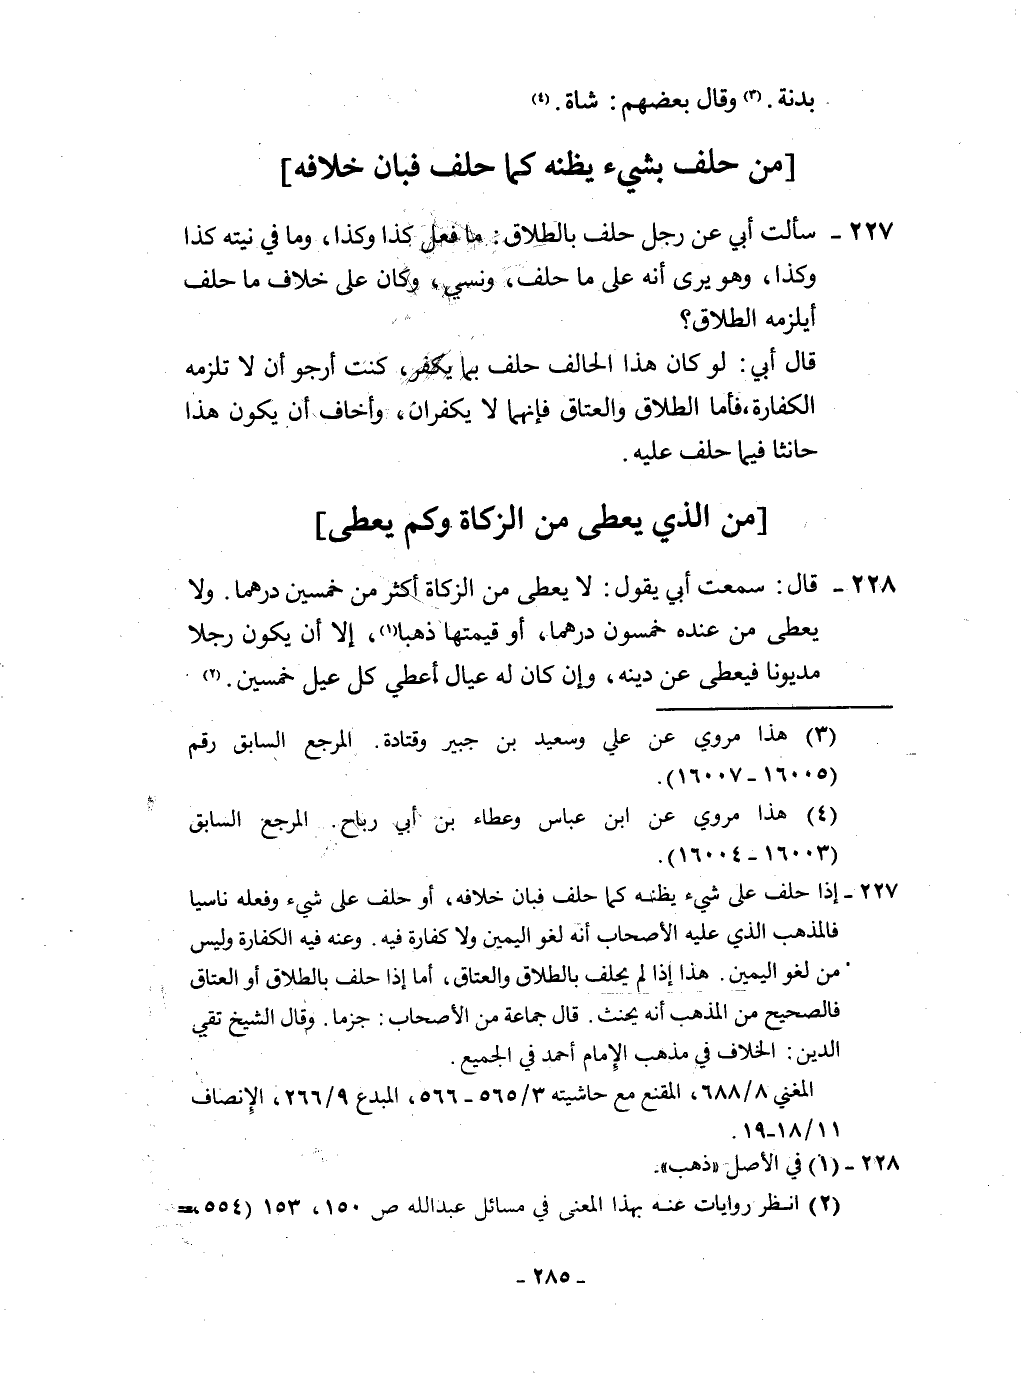 بدنة. (٣) وقال بعضهم: شاة. (٤)
[من حلف بشيء يظنه كما حلف فبان خلافه]
٢٢٧ - سألت أبي عن رجل حلف بالطلاق: ما فعل كذا وكذا، وما في نيته كذا
وكذا، وهو يرى أنه على ما حلف، ونسي، وكان على خلاف ما حلف
أيلزمه الطلاق؟
قال أبي: لو كان هذا الحالف حلف بما يكفر، كنت أرجو أن لا تلزمه
الكفارة، فأما الطلاق والعتاق فإنهما لا يكفران، وأخاف أن يكون هذا
حانثا فيما حلف عليه.
[من الذي يعطى من الزكاة وكم يعطى]
٢٢٨ - قال: سمعت أبي يقول: لا يعطى من الزكاة أكثر من خمسين درهما. ولا
يعطى من عنده خمسون درهما، أو قيمتها ذهبا(١)، إلا أن يكون رجلا
مديونا فيعطى عن دينه، وإن كان له عيال أعطي كل عيل خمسين. (٢)
(٣) هذا مروي عن علي وسعيد بن جبير وقتادة. المرجع السابق رقم
(١٦٠٠٥-١٦٠٠٧).
(٤) هذا مروي عن ابن عباس وعطاء بن أبي رباح. المرجع السابق
(١٦٠٠٣-١٦٠٠٤).
٢٢٧ - إذا حلف على شيء يظنه كما حلف فبان خلافه، أو حلف على شيء وفعله ناسيا
فالمذهب الذي عليه الأصحاب أنه لغو اليمين ولا كفارة فيه. وعنه فيه الكفارة وليس
من لغو اليمين. هذا إذا لم يحلف بالطلاق والعتاق، أما إذا حلف بالطلاق أو العتاق
فالصحيح من المذهب أنه يحنث. قال جماعة من الأصحاب: جزما. وقال الشيخ تقي
الدين: الخلاف في مذهب الإمام أحمد في الجميع.
المغني ٦٨٨/٨، المقنع مع حاشيته ٥٦٥/٣ - ٥٦٦، المبدع ٢٦٦/٩، الإنصاف
١٨/١١-١٩.
٢٢٨ - (١) في الأصل «ذهب».
(٢) انظر روايات عنه بهذا المعنى في مسائل عبدالله ص ١٥٠، ١٥٣ (٥٥٤، =
- ٢٨٥ -